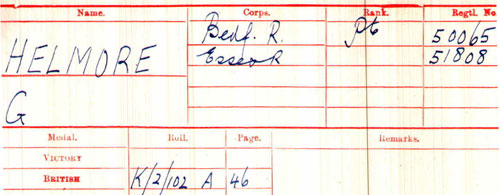 Name. Corps. Rank. Regtl. No
HELMORE Bedf. R. Pte 50065
Essex R 51808
G
Medal. Roll. Page. Remarks.
VICTORY
BRITISH K/2/102 A 46